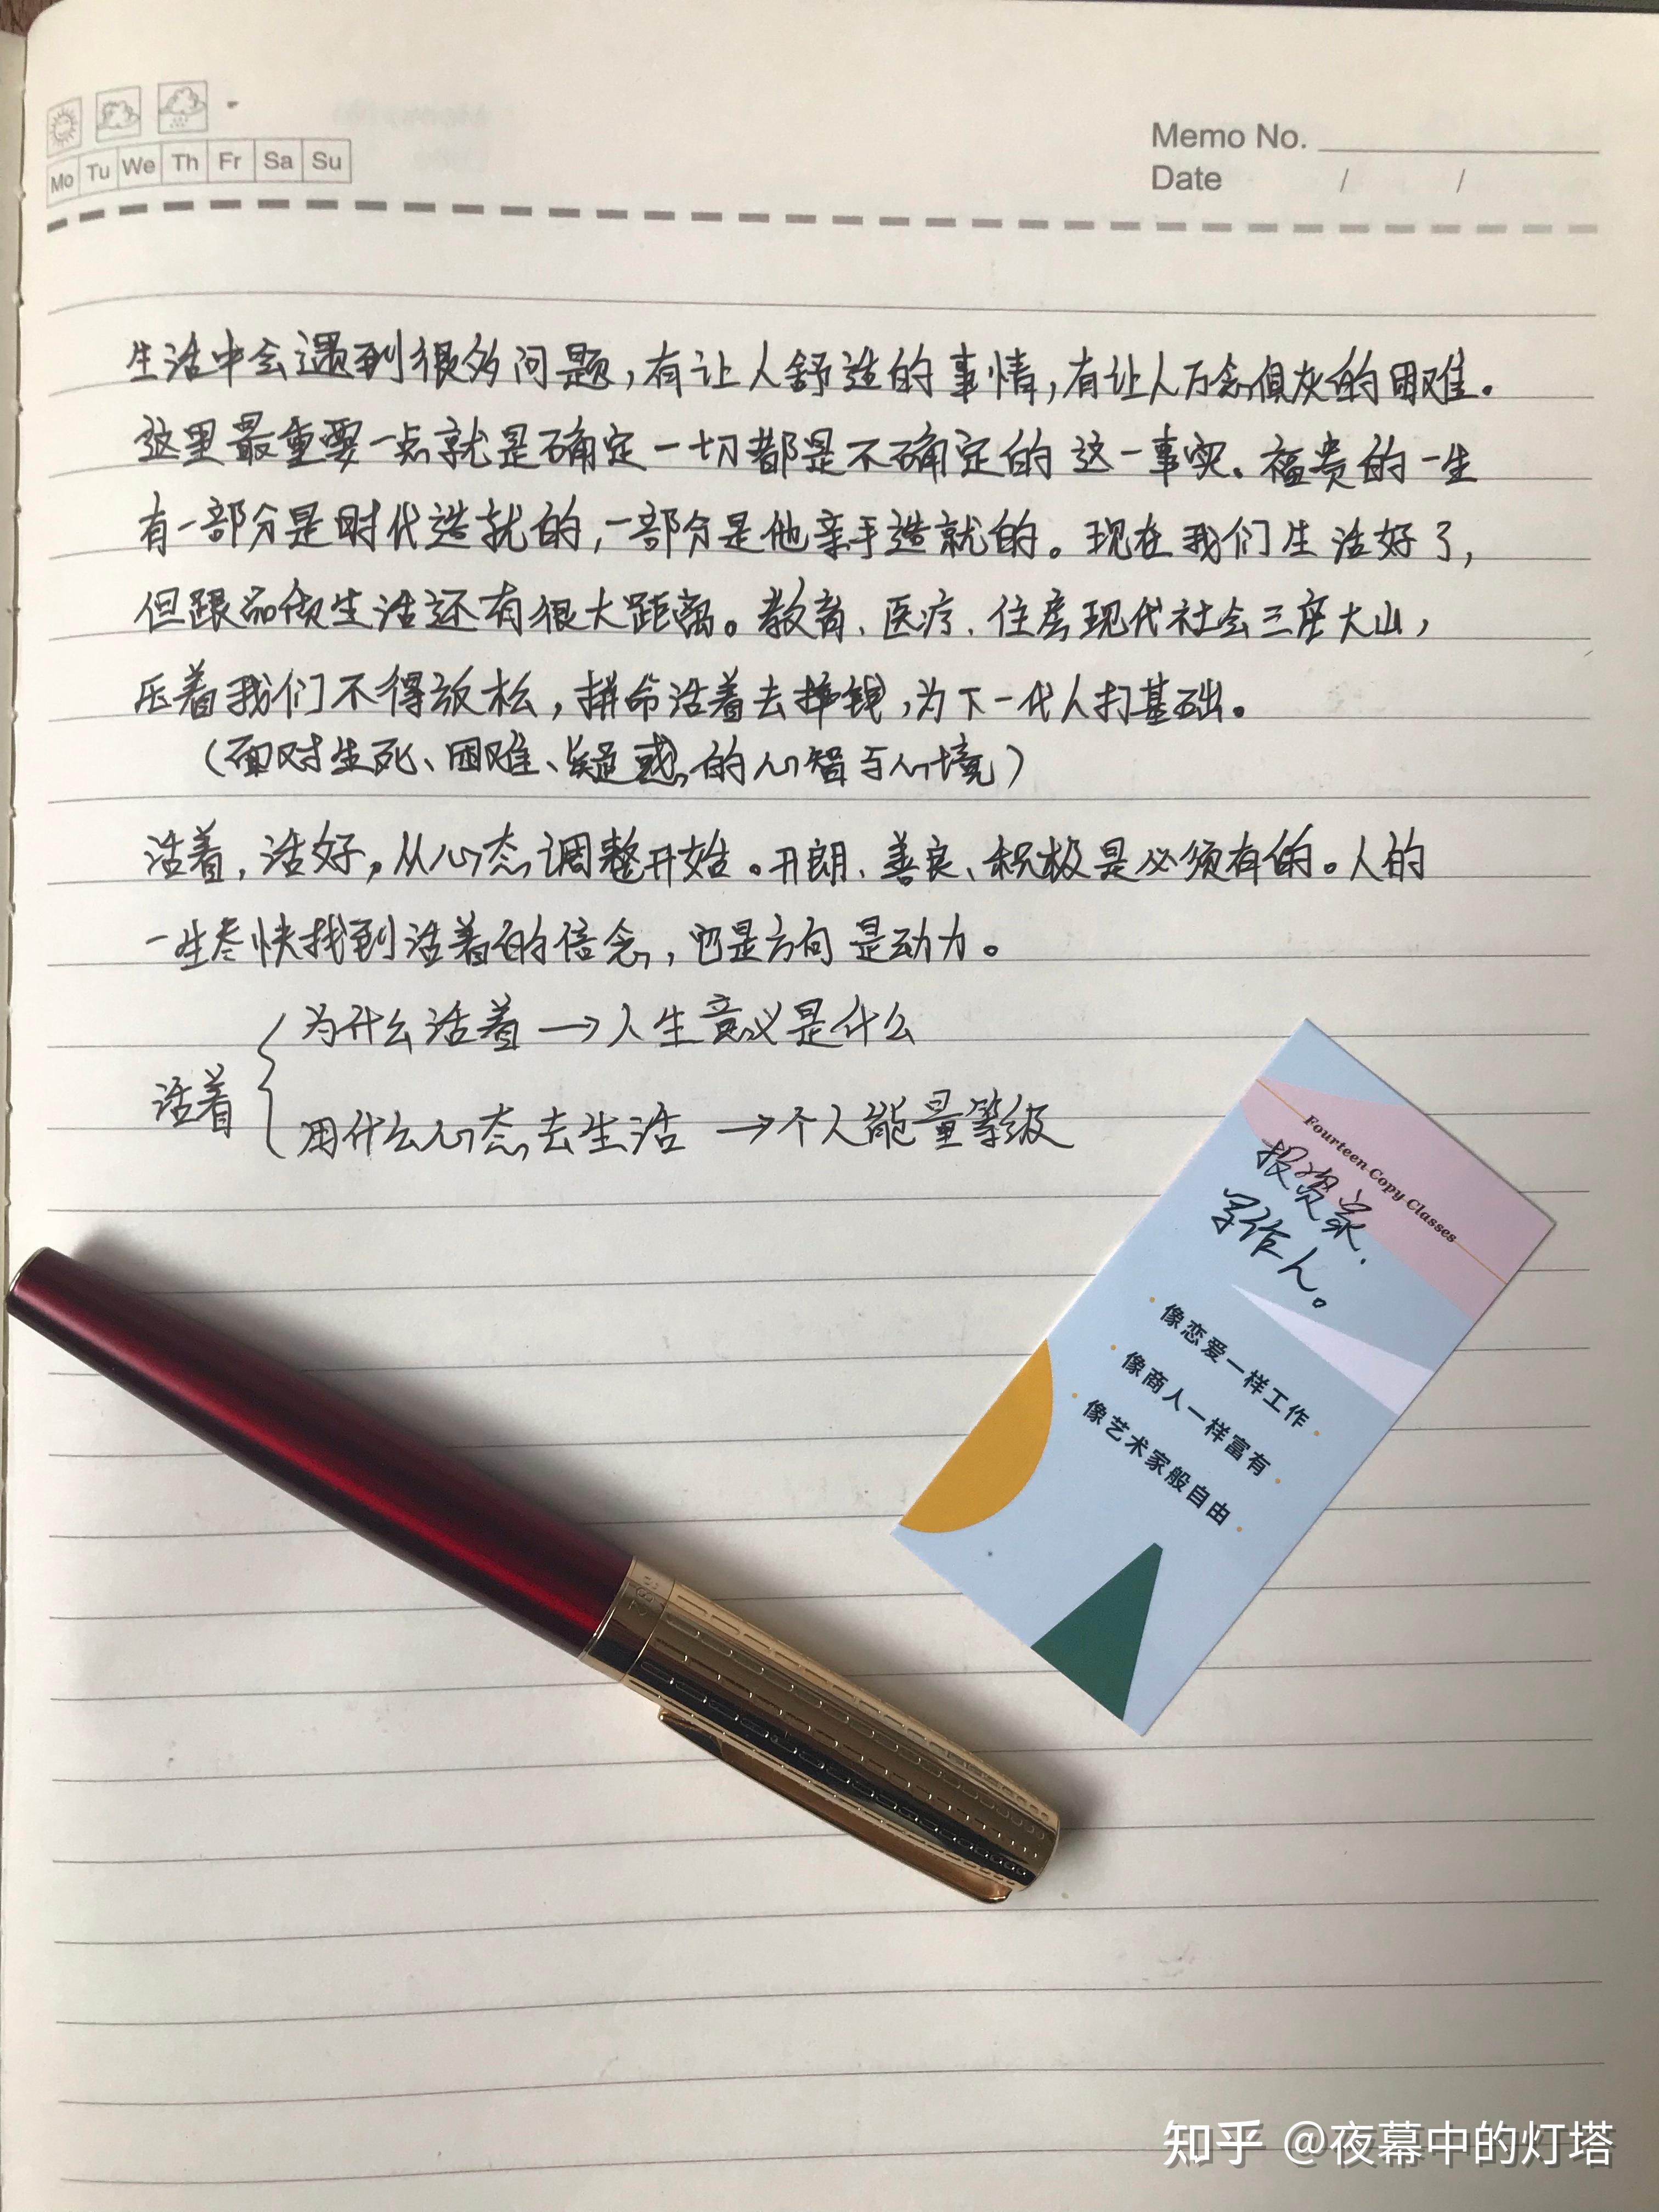 Mo Tu We Th Fr Sa Su
Memo No.
Date / /
生活中会遇到很多问题,有让人舒适的事情,有让人万念俱灰的困难。
这里最重要一点就是确定一切都是不确定的这一事实。福贵的一生
有一部分是时代造就的,一部分是他亲手造就的。现在我们生活好了,
但跟品质生活还有很大距离。教育、医疗、住房现代社会三座大山,
压着我们不得放松,拼命活着去挣钱,为下一代人打基础。
(面对生死、困难、疑惑的心智与心境)
活着,活好,从心态调整开始。开朗、善良、积极是必须有的。人的
一生尽快找到活着的信念,它是方向是动力。
为什么活着→人生意义是什么
活着
用什么心态去生活→个人能量等级
Fourteen Copy Classes
投资家.
写作人。
像恋爱一样工作
像商人一样富有
像艺术家般自由
知乎 @夜幕中的灯塔